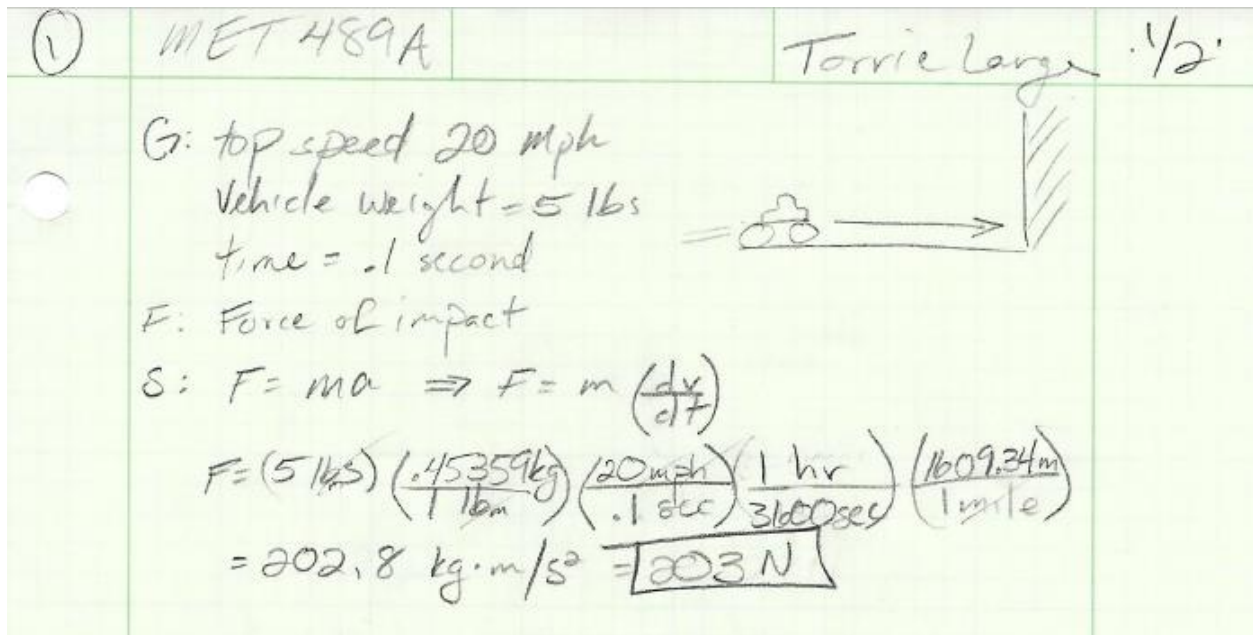 ① MET 489A Torrie Large 1/2
G: top speed 20 mph
vehicle weight = 5 lbs
time = .1 second
F: Force of impact
S: F = ma ⇒ F = m (dv/dt)
F = (5 lbs) (.45359kg / 1 lbm) (20 mph / .1 sec) (1 hr / 3600sec) (1609.34m / 1 mile)
= 202.8 kg·m/s² = 203 N